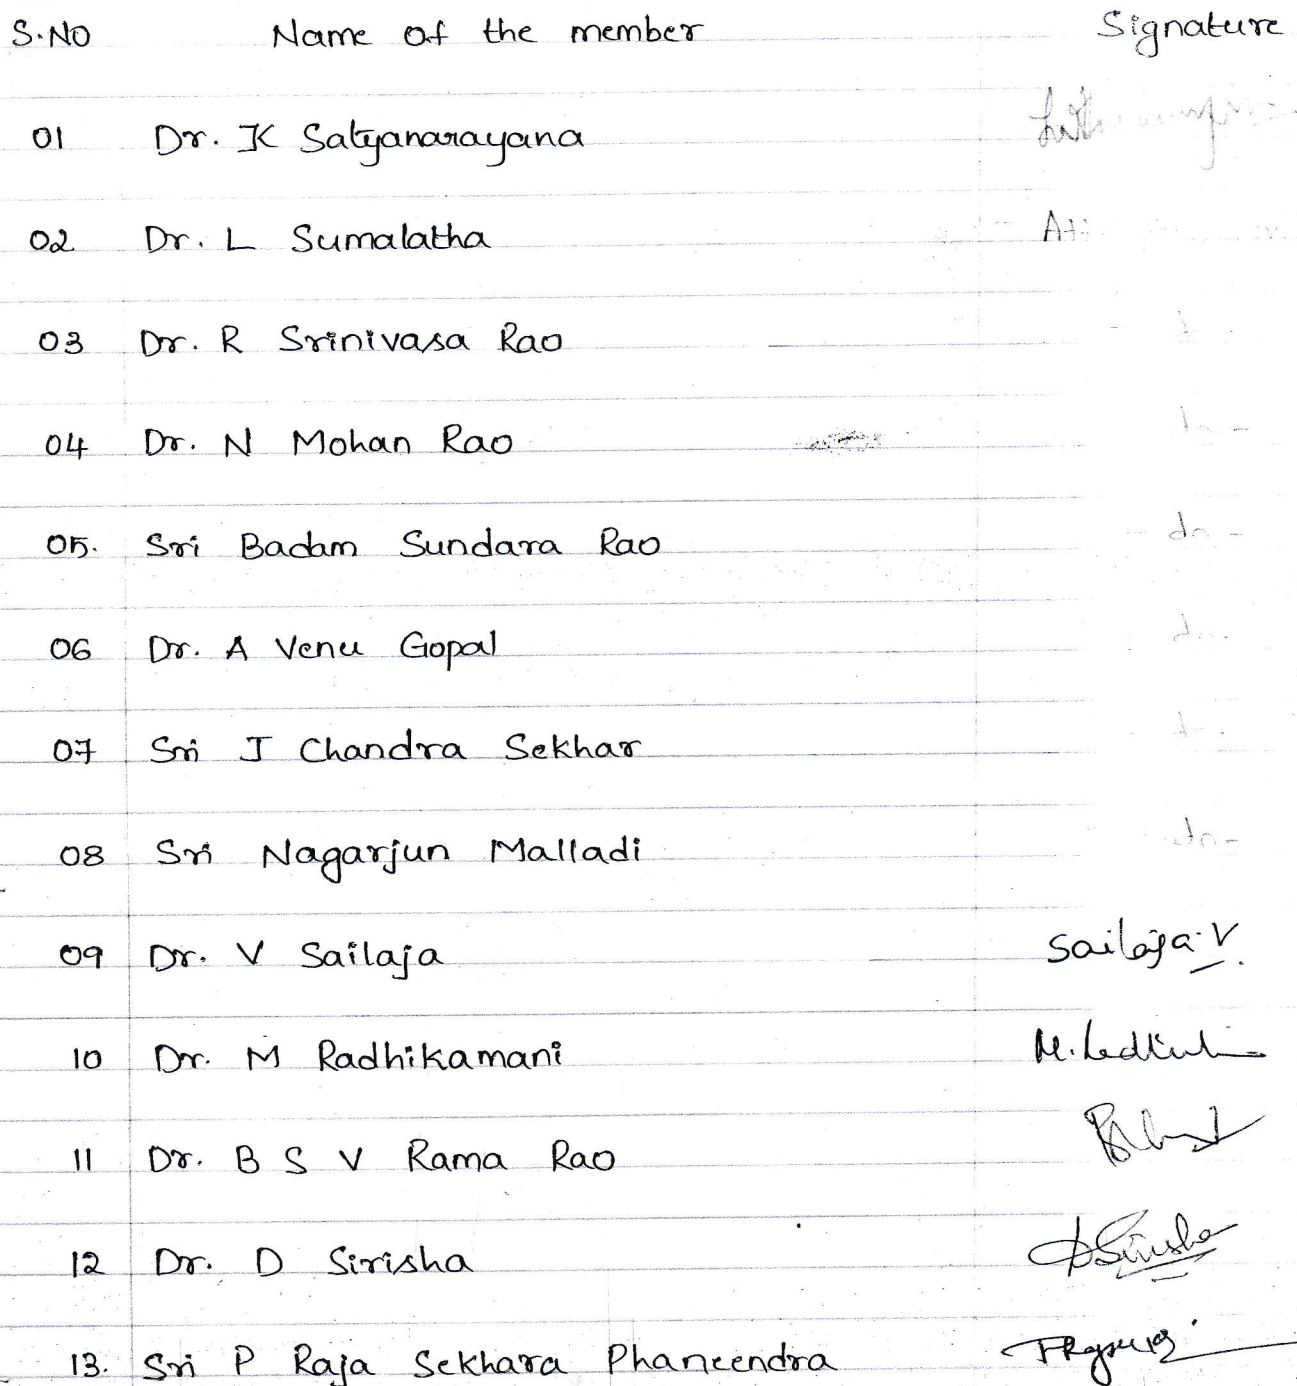 S.NO Name of the member Signature
01 Dr. K Satyanarayana
02 Dr. L Sumalatha
03 Dr. R Srinivasa Rao
04 Dr. N Mohan Rao
05. Sri Badam Sundara Rao - do -
06 Dr. A Venu Gopal
07 Sri J Chandra Sekhar
08 Sri Nagarjun Malladi - do -
09 Dr. V Sailaja Sailaja.V
10 Dr. M Radhikamani
11 Dr. B S V Rama Rao
12 Dr. D Sirisha DSirisha
13. Sri P Raja Sekhara Phaneendra